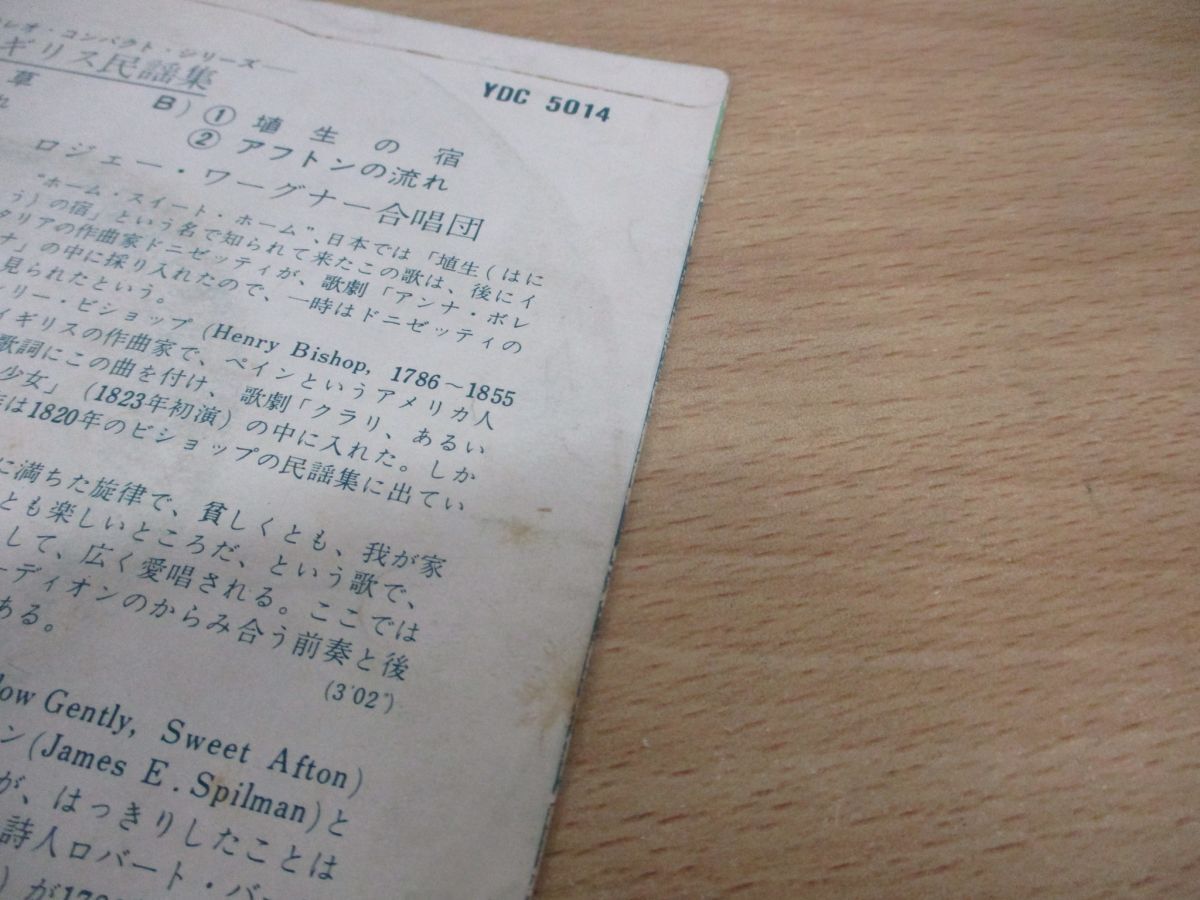 レオ・コンパクト・シリーズ——
ギリス民謡集
YDC 5014
草 B) ① 埴生の宿
れ ② アフトンの流れ
ロジェー・ワーグナー合唱団
"ホーム・スイート・ホーム"、日本では「埴生(はに
う)の宿」という名で知られて来たこの歌は、後にイ
タリアの作曲家ドニゼッティが、歌劇「アンナ・ボレ
ナ」の中に採り入れたので、一時はドニゼッティの
見られたという。
ンリー・ビショップ (Henry Bishop, 1786～1855
イギリスの作曲家で、ペインというアメリカ人
歌詞にこの曲を付け、歌劇「クラリ、あるい
少女」(1823年初演)の中に入れた。しか
は1820年のビショップの民謡集に出てい
に満ちた旋律で、貧しくとも、我が家
とも楽しいところだ、という歌で、
して、広く愛唱される。ここでは
ーディオンのからみ合う前奏と後
ある。
(3'02")
low Gently, Sweet Afton)
ン(James E. Spilman)と
が、はっきりしたことは
詩人ロバート・バ
) が17